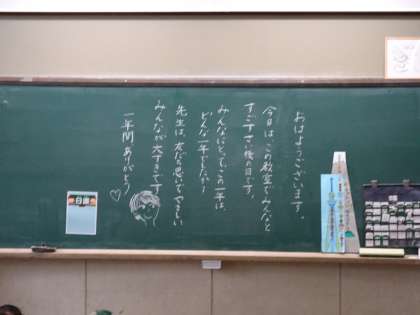 おはようございます。
今日は、この教室でみんなと
すごす最後の日です。
みんなにとって、この一年は、
どんな一年でしたか？
先生は、友だち思いで、やさしい
みんなが大すきです。
一年間ありがとう♡
日直